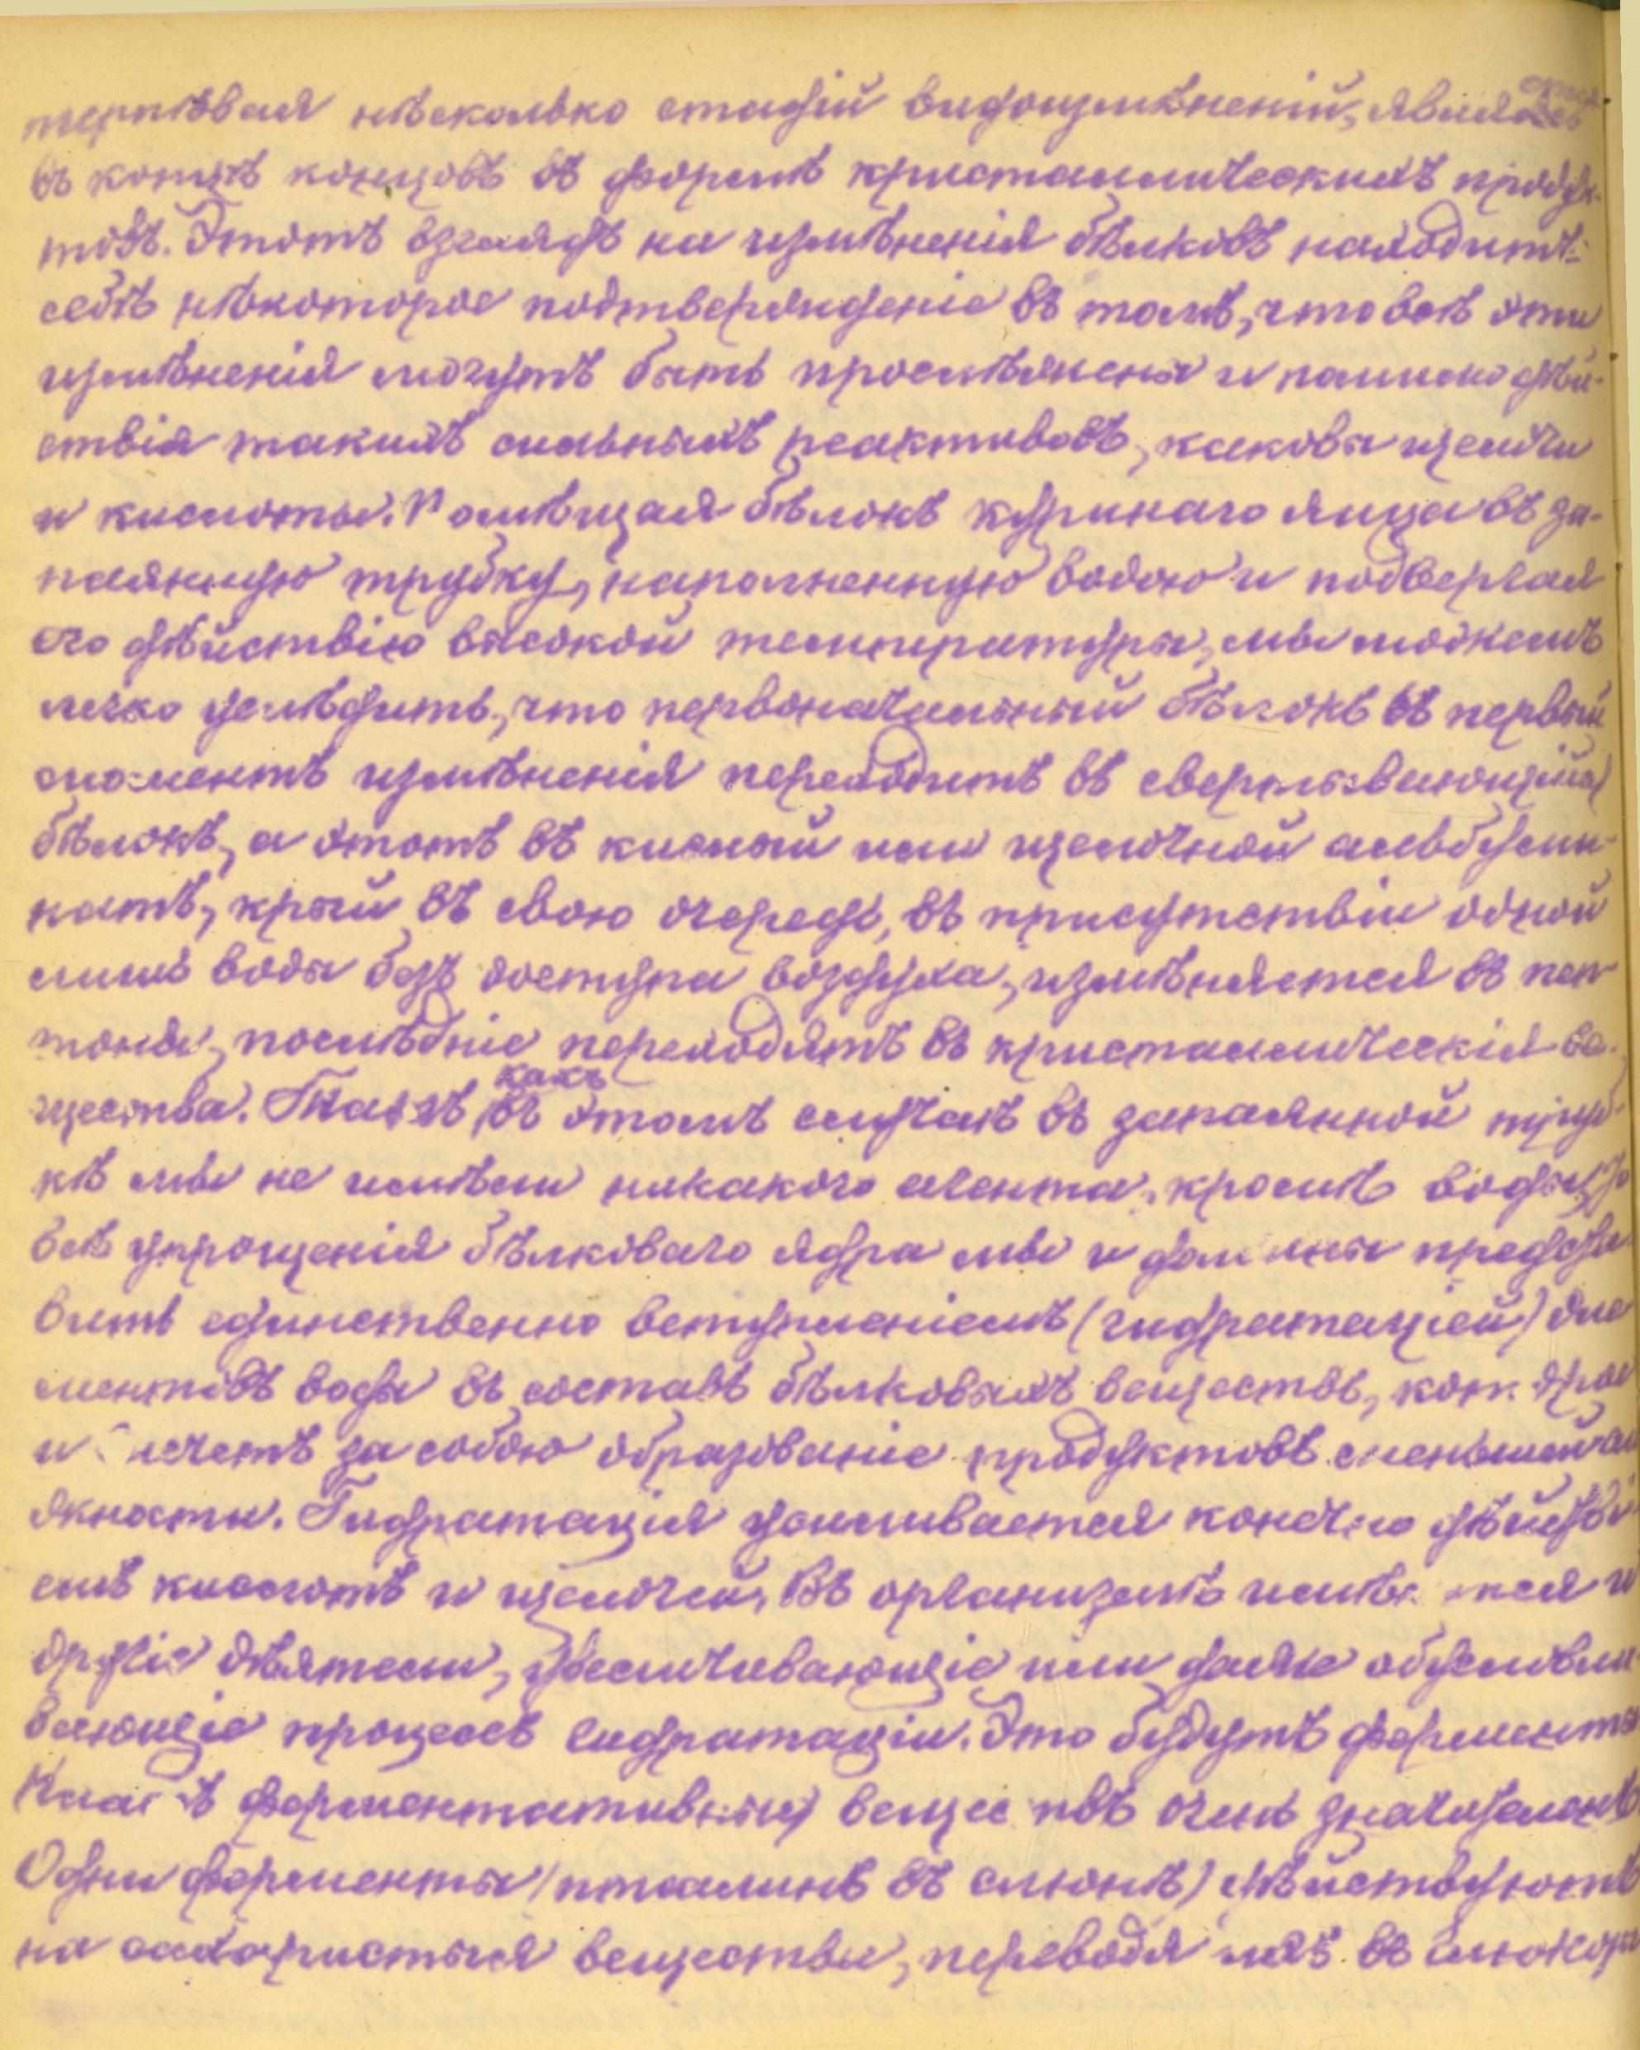 терпѣвая нѣсколько стадій видоизмѣненій, являясь
въ концѣ концовъ въ формѣ кристаллическихъ продук-
товъ. Этотъ взглядъ на измѣненія бѣлковъ находитъ
себѣ нѣкоторое подтвержденіе въ томъ, что всѣ эти
измѣненія могутъ быть прослѣжены и помимо дѣй-
ствія такихъ сильныхъ реактивовъ, каковы щелочи
и кислоты. Помѣщая бѣлокъ куринаго яица въ за-
паянную трубку, наполненную водою и подвергая
его дѣйствію высокой температуры, мы можемъ
легко услѣдить, что первоначальный бѣлокъ въ первый
моментъ измѣненія переходитъ въ свертывающійся
бѣлокъ, а этотъ въ кислый или щелочной альбуми-
натъ, крый въ свою очередь, въ присутствіи одной
лишь воды безъ доступа воздуха, измѣняется въ пеп-
тоны, послѣдніе переходятъ въ кристаллическія ве-
щества. Такъ какъ въ этомъ случаѣ въ запаянной труб-
кѣ мы не имѣли никакого агента, кромѣ воды, то
всѣ упрощенія бѣлковаго ядра мы и должны предста-
вить единственно вступленіемъ (гидратаціей) эле
ментовъ воды въ составъ бѣлковыхъ веществъ, которое
и влечетъ за собою образованіе продуктовъ меньшей сл
жности. Гидратація усиливается конечно дѣйстві-
емъ кислотъ и щелочей. Въ организмѣ имѣются и
другіе дѣятели, увеличивающіе или даже обусловли-
вающіе процессъ гидратаціи. Это будутъ ферменты
Классъ ферментативныхъ веществъ очень значителенъ
Одни ферменты (птіалинъ въ слюнѣ) дѣйствуютъ
на сахаристыя вещества, переводя ихъ въ глюкозу